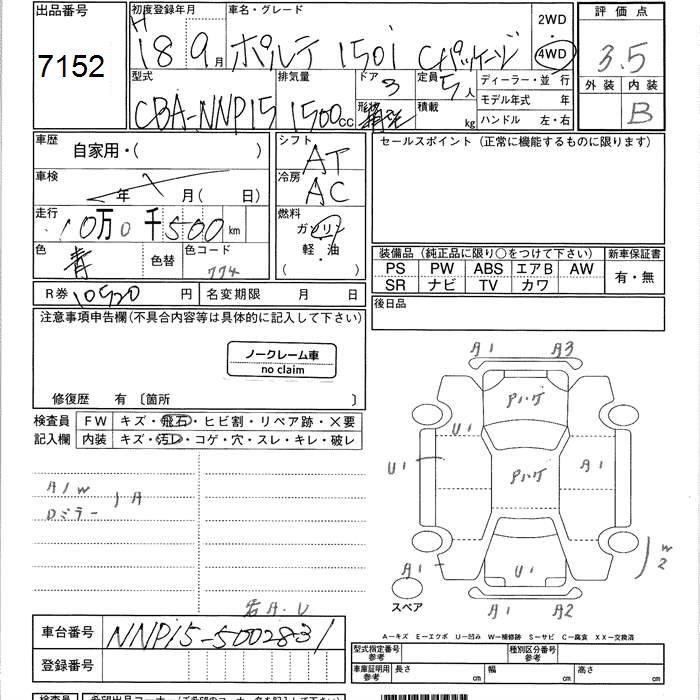 出品番号 初度登録年月 車名・グレード 2WD 評価点
7152 H 18 9月 ポルテ 150i Cパッケージ 4WD 3.5
型式 排気量 ドア 3 定員 5人 ディーラー・並行 外装 内装
CBA-NNP15 1500cc 形状 積載 kg モデル年式 年 B
ハンドル 左・右
車歴 自家用・( ) シフト AT セールスポイント (正常に機能するものに限ります)
車検 年 月(日) 冷房 AC
走行 10万0千500km 燃料 ガソリン
色 青 色替 色コード 774 軽・油 ( ・ )
装備品 (純正品に限り○をつけて下さい) 新車保証書
PS PW ABS エアB AW 有・無
SR ナビ TV カワ
R券 10520 円 名変期限 月 日
後日品
注意事項申告欄(不具合内容等は具体的に記入して下さい)
ノークレーム車
no claim
修復歴 有 〔箇所 〕
検査員 FW キズ・飛石・ヒビ割・リペア跡・×要
記入欄 内装 キズ・汚レ・コゲ・穴・スレ・キレ・破レ
A1 A3
パハゲ
U1
U1 パハゲ A1
A/W
Dミラー )A
W2
A1 U1
スペア A1 A2
若A.U
A―キズ E―エクボ U―凹み W―補修跡 S―サビ C―腐食 XX―交換済
車台番号 NNP15-5002831
登録番号
型式指定番号 参考 種別区分番号 参考
車庫証明用 参考 長さ cm 幅 cm 高さ cm
検査員 希望出品コーナー(ご希望のコーナー名を記入して下さい)